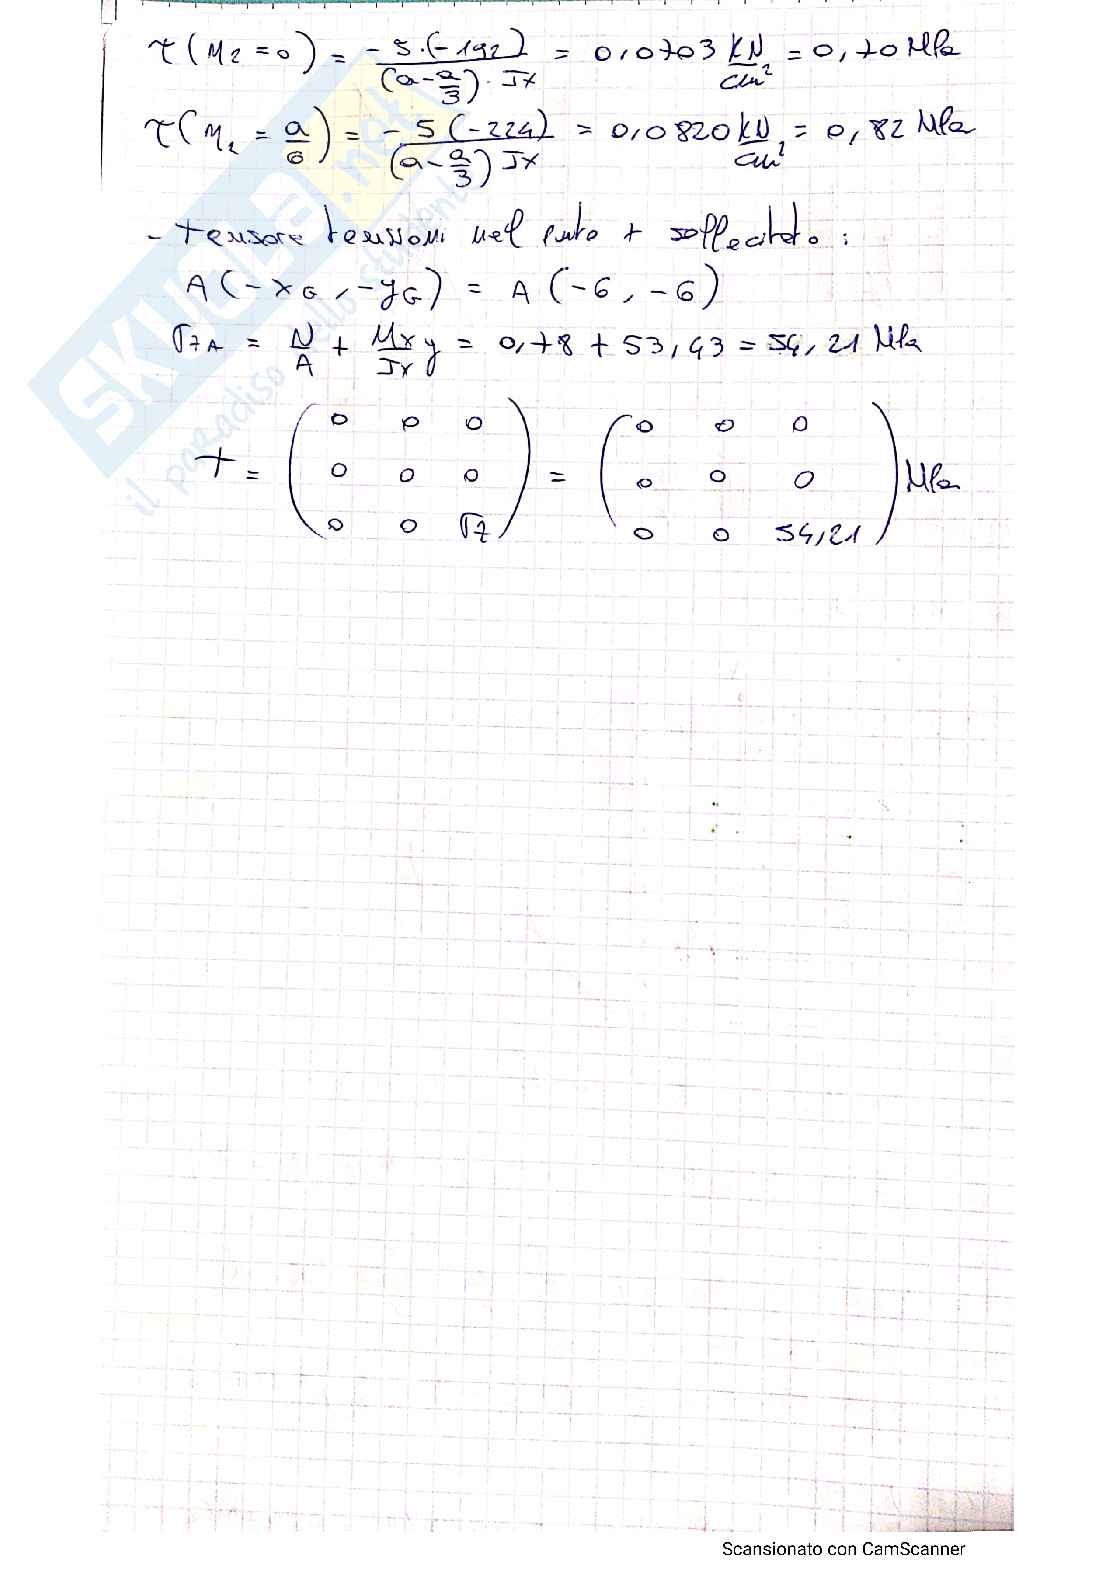 τ(η₂ = 0) = -5·(-192) / ((a - a/3)·Jx) = 0,0703 kN/cm² = 0,70 MPa
τ(η₂ = a/6) = -5(-224) / ((a - a/3) Jx) = 0,0820 kN/cm² = 0,82 MPa
- tensore tensioni nel punto + sollecitato :
A(-xG, -yG) = A(-6, -6)
σzA = N/A + Mx/Jx y = 0,78 + 53,43 = 54,21 MPa
T = (0 0 0; 0 0 0; 0 0 σz) = (0 0 0; 0 0 0; 0 0 54,21) MPa
SKUOLA.net
il paradiso dello studente
Scansionato con CamScanner